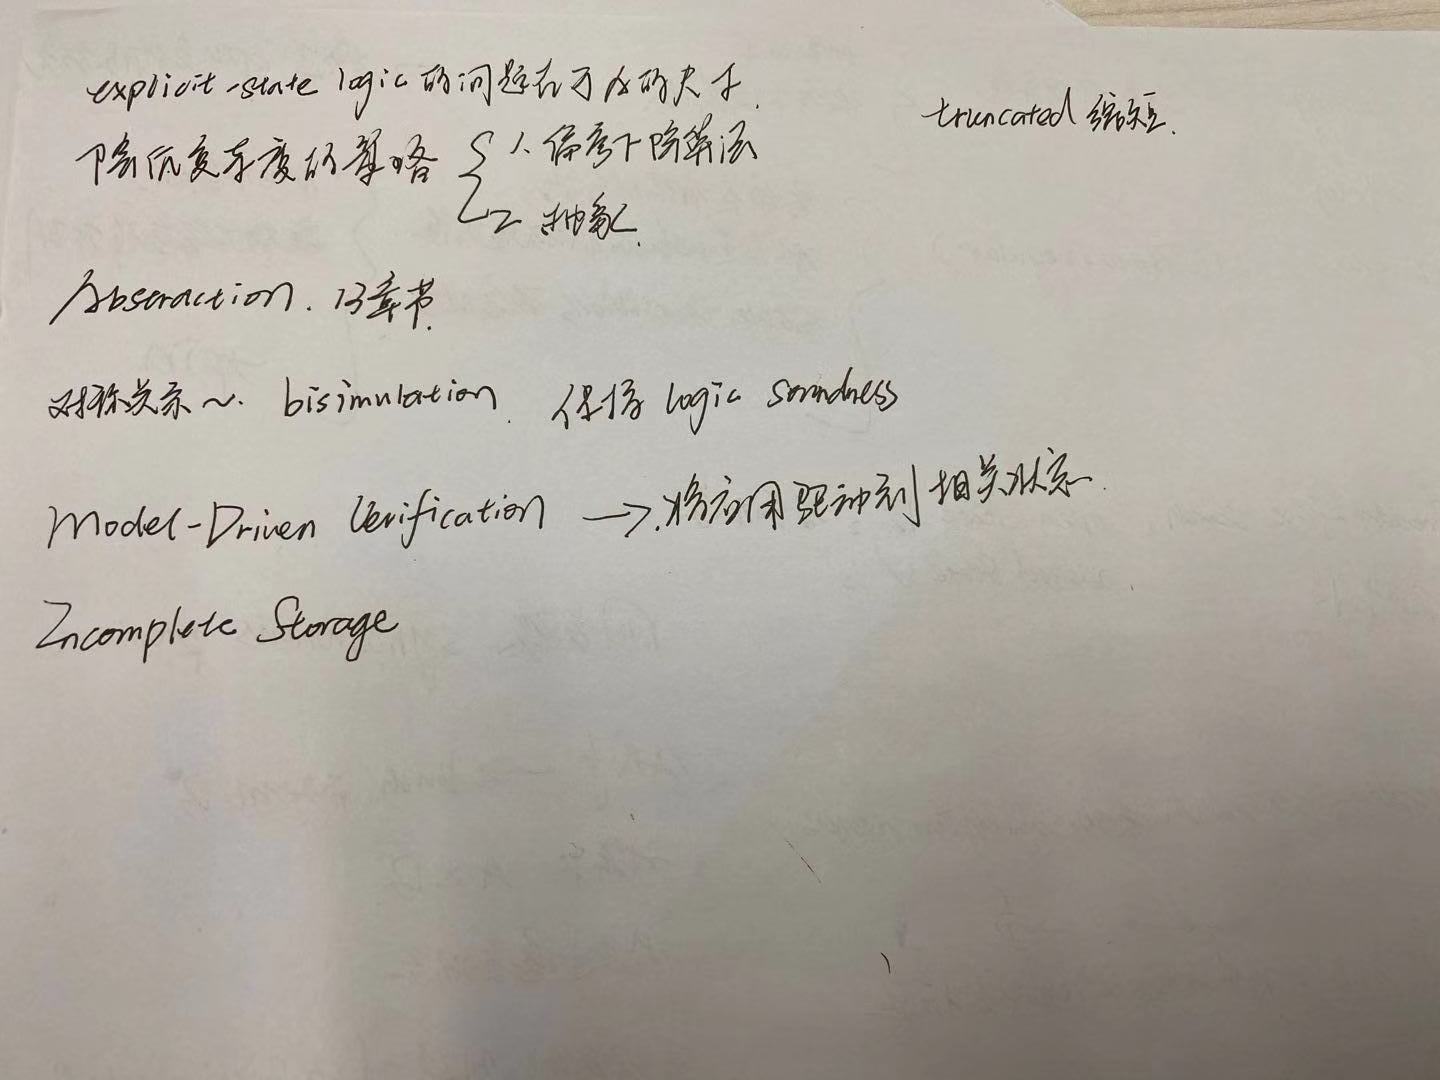 explicit-state logic的问题在于
truncated 缩短.
降低复杂度的策略 { 1. 偏序下降算法
2 抽象.
Abstraction. 13章节.
对称关系~. bisimulation. 保持 logic soundness
Model-Driven Verification →. 将应用驱动到相关状态.
Incomplete Storage